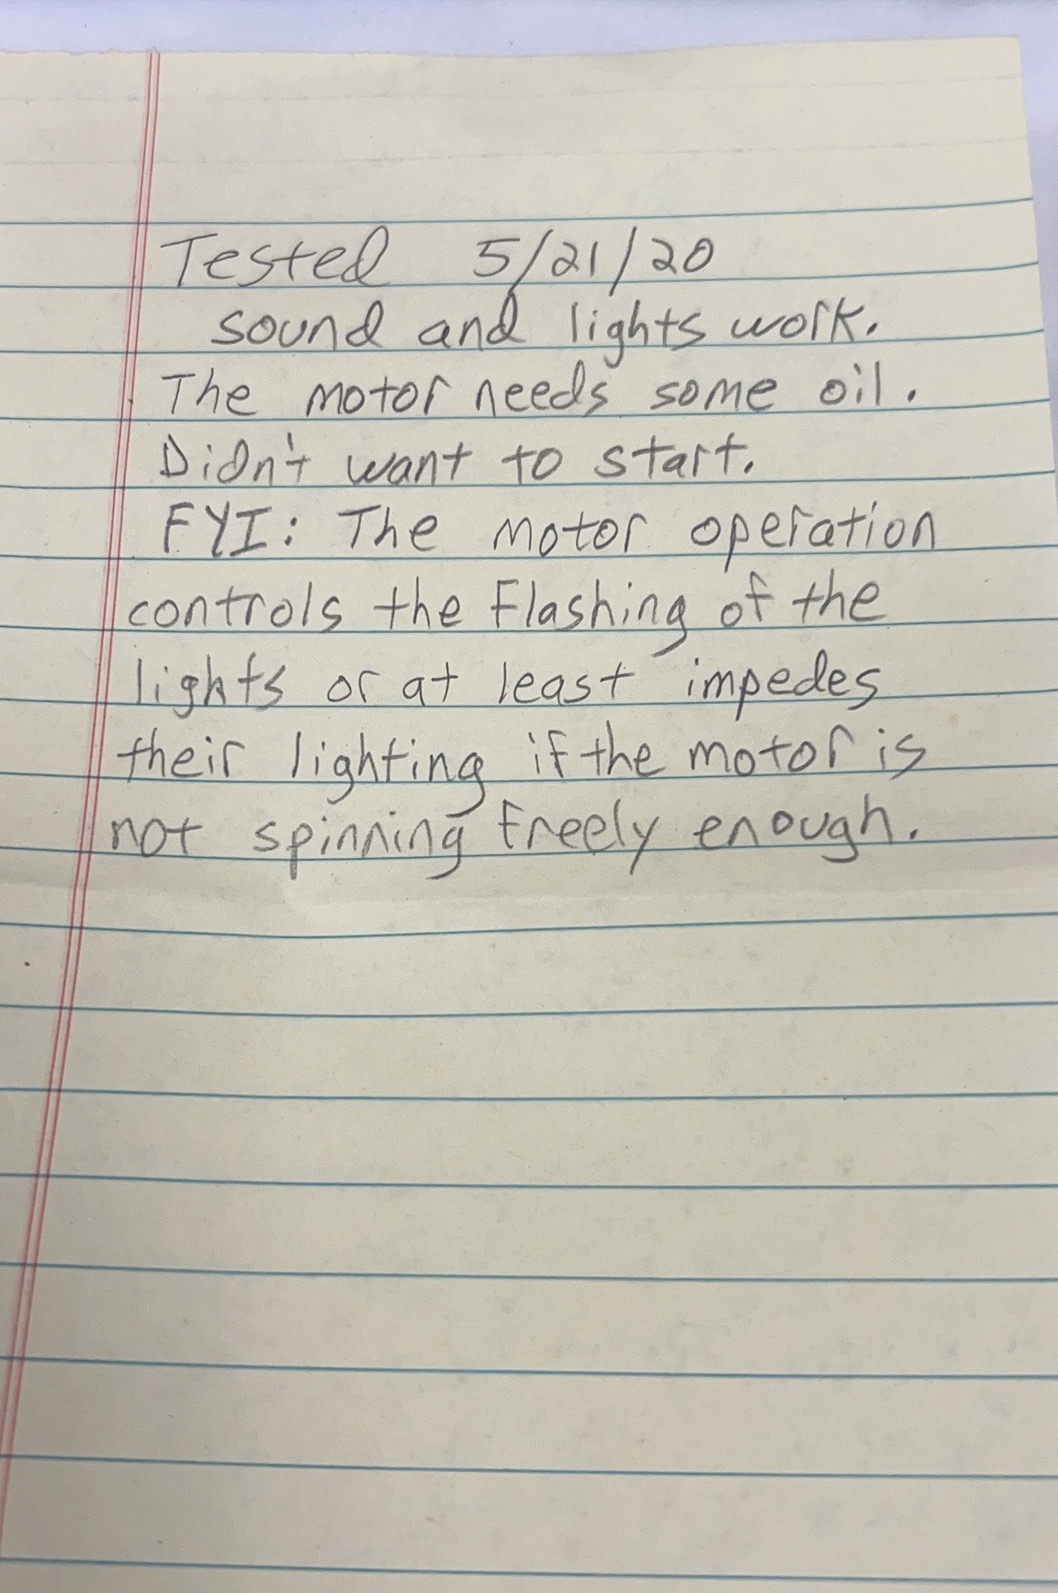 Tested 5/21/20
sound and lights work.
The motor needs some oil.
Didn't want to start.
FYI: The motor operation
controls the flashing of the
lights or at least impedes
their lighting if the motor is
not spinning freely enough.